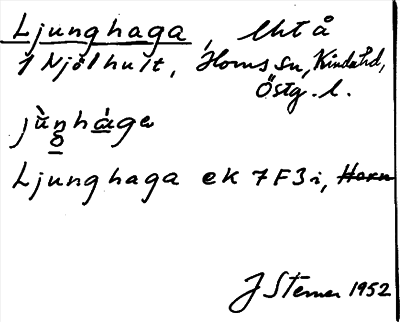 Ljunghaga, lht å
1 Njölhult, Horns sn, Kinda hd,
Östg. l.
jùnhága
o
Ljunghaga ek 7F3i, Horn
J Sterner 1952